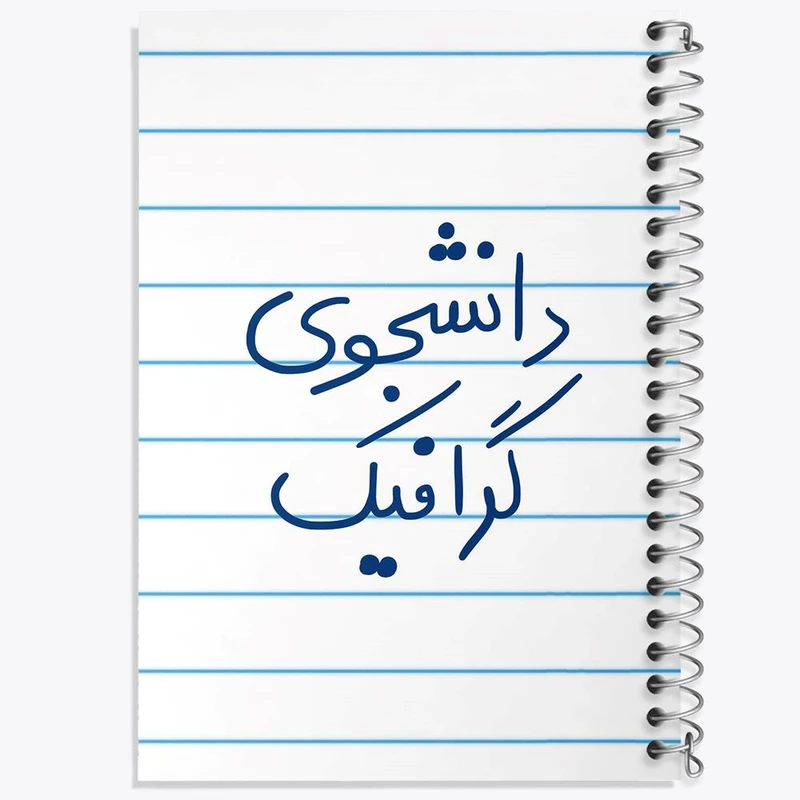 دانشجوی
گرافیک